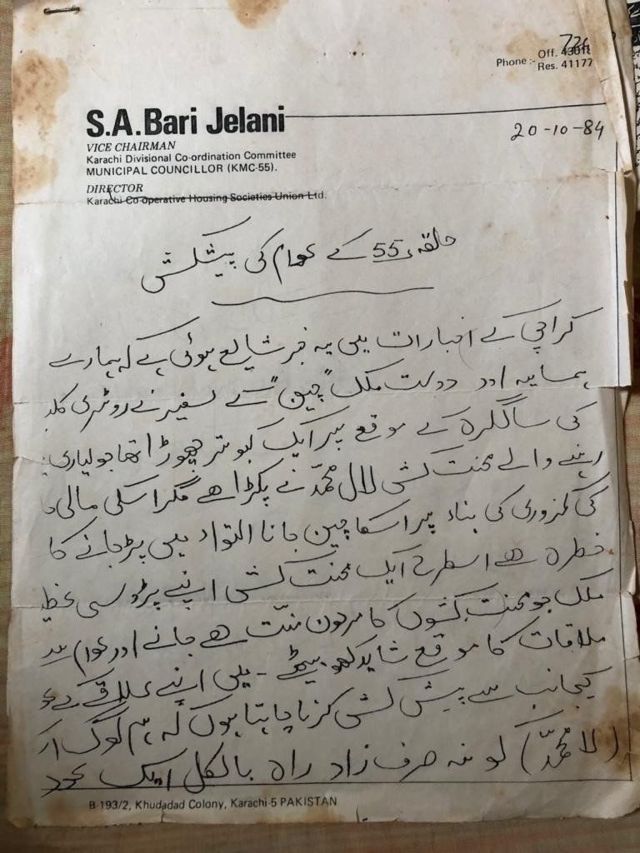 726
Phone :- Off. 43011
Res. 41177
S.A.Bari Jelani
VICE CHAIRMAN
Karachi Divisional Co-ordination Committee
MUNICIPAL COUNCILLOR (KMC-55).
DIRECTOR
Karachi Co-operative Housing Societies Union Ltd.
20-10-84
حلقہ 55 کے عوام کی پیشکش
کراچی کے اخبارات میں یہ خبر شایع ہوئی ہے کہ ہمارے
ہمسایہ اور دوست ملک "چین" کے سفیر نے روٹری کلب
کی سالگرہ کے موقع پر ایک کبوتر چھوڑا تھا جو لیاری
رہنے والے محنت کش لال محمد نے پکڑا ہے مگر اسکی مالی
کی کمزوری کی بناء پر اسکا چین جانا التواء میں پڑ جانے کا
خطرہ ہے اسطرح ایک محنت کش اپنے پڑوسی
ملک جو محنت کشوں کا مرہون منت ہے جانے اور عوام سے
ملاقات کا موقع شاید کھو بیٹھے - میں اپنے علاقے کے
کیجانب سے پیش کش کرنا چاہتا ہوں کہ ہم لوگ
(لال محمد) کو نہ صرف زاد راہ بالکل ایک
B 193/2, Khudadad Colony, Karachi-5 PAKISTAN